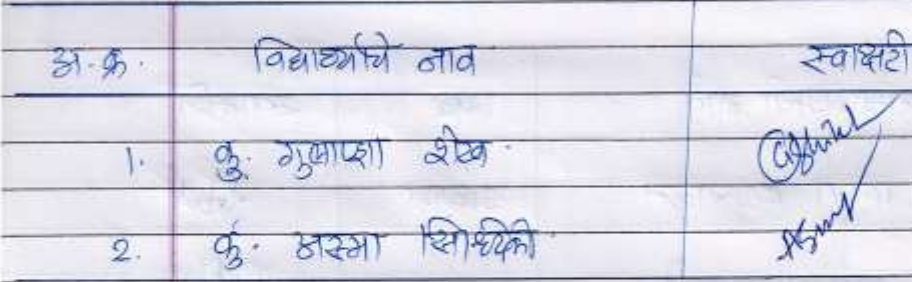 अ.क्र. विद्यार्थ्याचे नाव स्वाक्षरी
1. कु. गुलाप्शा शेख.
2. कु. अस्मा सिध्दीकी.